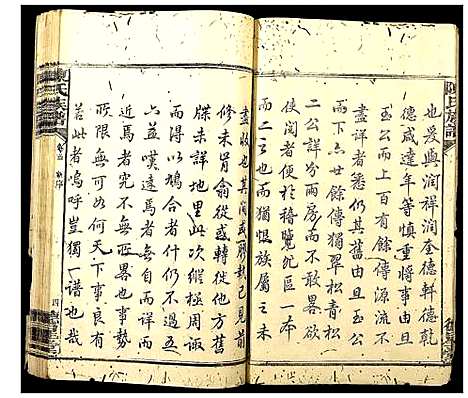 陳氏族譜
也爰與潤祥潤奎德軒德乾
德咸達年等慎重將事由旦
玉公而上百有餘傳源流不
盡詳者悉仍其舊由旦玉公
而下亦廿餘傳獨翠松青松
二公詳分兩房而不敢畧異
使閱者便於稽覽欲區一本
而二之也獨恨族屬之未
盡收也其潤咸廖執已見前
修未肯翕從或轉徙他方其
牒未詳地里此次縱極周諏
而得以鳩合者什仍不過五
六益嘆遠焉者自而詳而
近焉者究不無所畧也事勢
所限無可如何天下事良有
若此者嗚呼豈獨一譜也哉
陳氏族譜
卷首
序
四